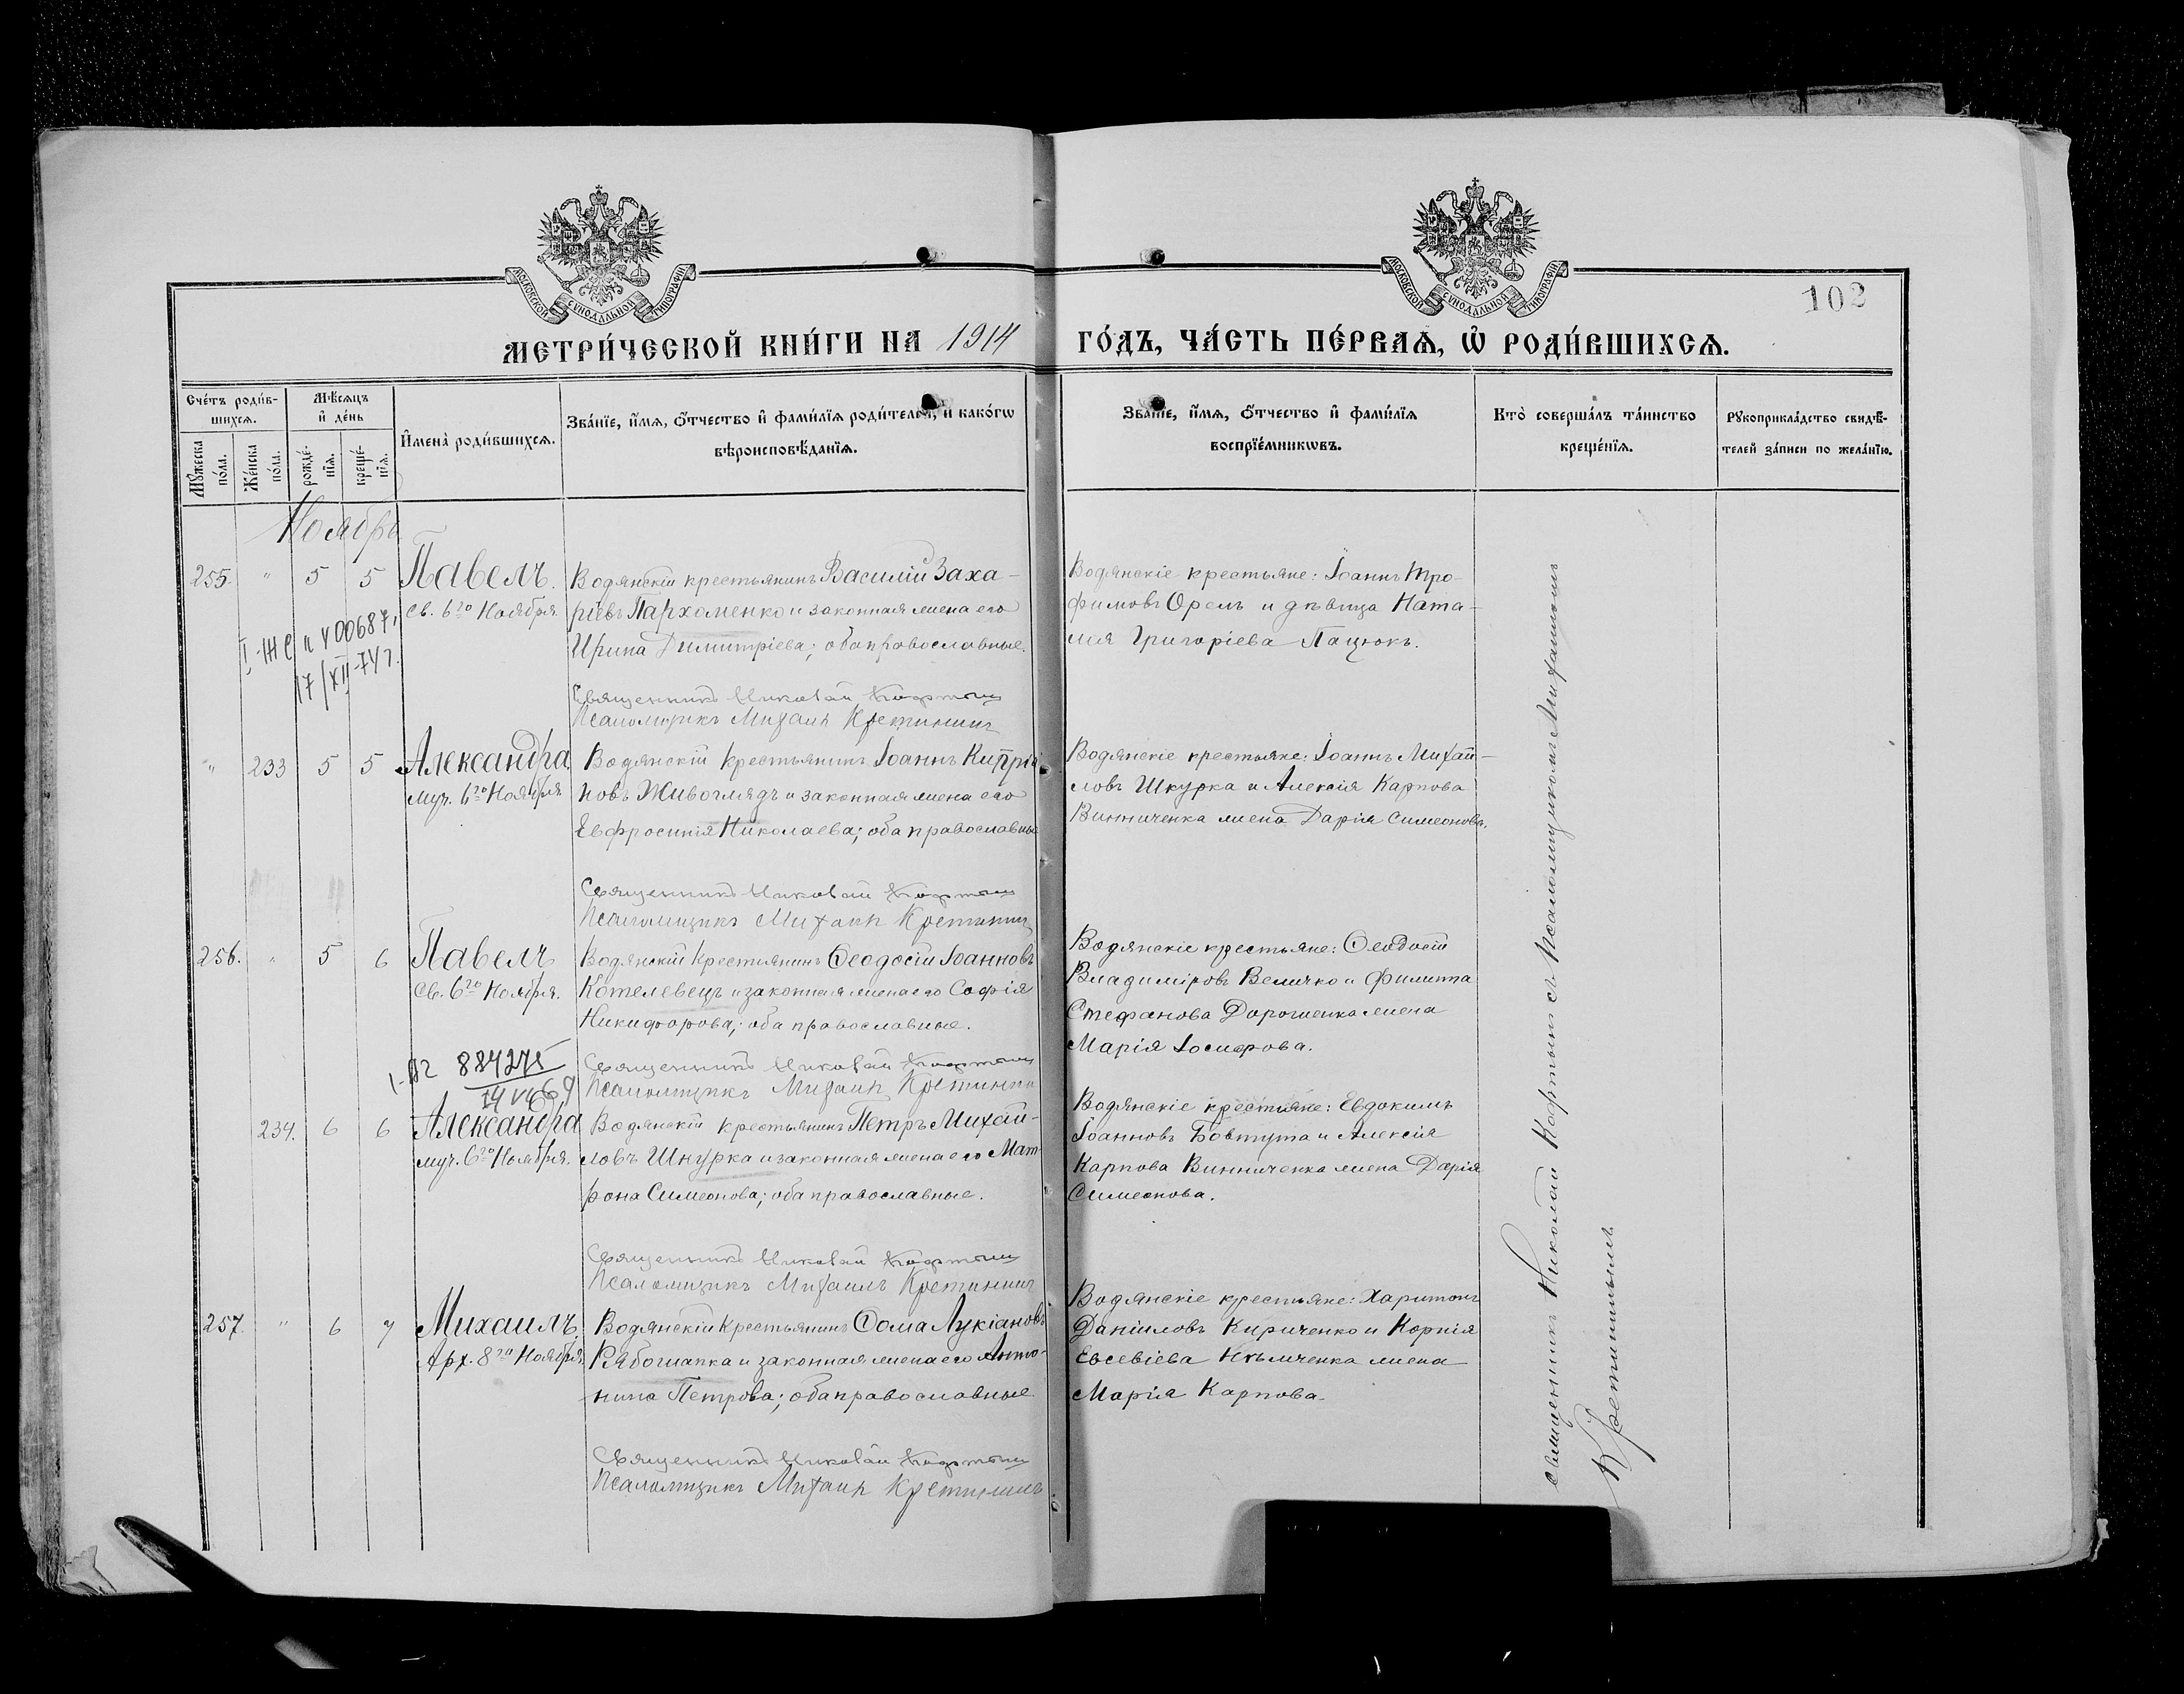 МОСКОВСКОЙ СѴНОДАЛЬНОЙ ТИПОГРАФІИ
МОСКОВСКОЙ СѴНОДАЛЬНОЙ ТИПОГРАФІИ
102
МЕТРИ́ЧЕСКОЙ КНИ́ГИ НА 1914 ГО́ДЪ, ЧА́СТЬ ПЕ́РВАѦ, Ѽ РОДИ́ВШИХСѦ.
Сче́тъ роди́в-
шихсѧ.
Мꙋжеска по́ла.
Же́нска по́ла.
Мѣ́сѧцъ
и҆ де́нь
рожде́-
нїѧ.
креще́-
нїѧ.
И҆мена̀ роди́вшихсѧ.
Зва́нїе, и҆́мѧ, ѻ҆́тчество и҆ фами́лїѧ роди́телей, и҆ како́гѡ
вѣроисповѣ́данїѧ.
Зва́нїе, и҆́мѧ, ѻ҆́тчество и҆ фами́лїѧ
воспрїе́мникѡвъ.
Кто̀ соверша́лъ та́инство
креще́нїѧ.
Рꙋкоприкла́дство свидѣ́-
телей за́писи по жела́нїю.
Ноябрь
255. " 5 5 Павелъ.
св. 6го Ноября.
Водянскій крестьянинъ Василій Заха-
ріевъ Пархоменко и законная жена его
Ирина Димитріева; оба православные.
Священникъ Николай
Псаломщикъ Михаилъ Кретининъ
Водянскіе крестьяне: Іоаннъ Тро-
фимовъ Орелъ и дѣвица Ната-
лія Григоріева Пацюкъ.
17/XII-74г.
" 233 5 5 Александра
муч. 6го Ноября
Водянскій крестьянинъ Іоаннъ Кипрія-
новъ Живоглядъ и законная жена его
Евфросинія Николаева; оба православные
Священникъ Николай
Псаломщикъ Михаилъ Кретининъ
Водянскіе крестьяне: Іоаннъ Михай-
ловъ Шкурка и Алексія Карпова
Винниченка жена Дарія Симеонова.
256. " 5 6 Павелъ
Св. 6го Ноября.
Водянскій крестьянинъ Ѳеодосій Іоанновъ
Котелевецъ и законная жена его Софія
Никифорова; оба православные.
Священникъ Николай
Псаломщикъ Михаилъ Кретининъ
Водянскіе крестьяне: Ѳеодосій
Владиміровъ Величко и Филиппа
Стефанова Дорошенка жена
Марія Іосифова.
884275
234. 6 6 Александра
муч. 6го Ноября.
Водянскій крестьянинъ Петръ Михай-
ловъ Шнурка и законная жена его Мат-
рона Симеонова; оба православные.
Священникъ Николай
Псаломщикъ Михаилъ Кретининъ
Водянскіе крестьяне: Евдокимъ
Іоанновъ Бовтута и Алексія
Карпова Винниченка жена Дарія
Симеонова.
257. " 6 7 Михаилъ.
Арх. 8го Ноября.
Водянскій крестьянинъ Ѳома Лукіановъ
Рябошапка и законная жена его Анто-
нина Петрова; оба православные
Священникъ Николай
Псаломщикъ Михаилъ Кретининъ
Водянскіе крестьяне: Харитонъ
Даніиловъ Кириченко и Корнія
Евсевіева жена
Марія Карпова.
Священникъ Николай съ псаломщикомъ Михаиломъ
Кретининымъ